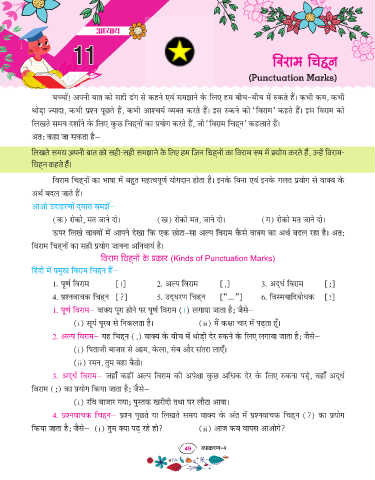 अध्याय
11
विराम चिह्न
(Punctuation Marks)
बच्चों! अपनी बात को सही ढंग से कहने एवं समझाने के लिए हम बीच-बीच में रुकते हैं। कभी कम, कभी
थोड़ा ज्यादा, कभी प्रश्न पूछते हैं, कभी आश्चर्य व्यक्त करते हैं। इस रुकने को 'विराम' कहते हैं। इस विराम को
लिखते समय दर्शाने के लिए कुछ चिह्नों का प्रयोग करते हैं, जो 'विराम चिह्न' कहलाते हैं।
अतः कहा जा सकता है–
लिखते समय अपनी बात को सही-सही समझाने के लिए हम जिन चिह्नों का विराम रूप में प्रयोग करते हैं, उन्हें विराम-
चिह्न कहते हैं।
विराम चिह्नों का भाषा में बहुत महत्वपूर्ण योगदान होता है। इनके बिना एवं इनके गलत प्रयोग से वाक्य के
अर्थ बदल जाते हैं।
आओ उदाहरणों द्वारा समझें–
(क) रोको, मत जाने दो। (ख) रोको मत, जाने दो। (ग) रोको मत जाने दो।
ऊपर लिखे वाक्यों में आपने देखा कि एक छोटा-सा अल्प विराम कैसे वाक्य का अर्थ बदल रहा है। अतः
विराम चिह्नों का सही प्रयोग जानना अनिवार्य है।
विराम चिह्नों के प्रकार (Kinds of Punctuation Marks)
हिंदी में प्रमुख विराम चिह्न हैं–
1. पूर्ण विराम [।] 2. अल्प विराम [,] 3. अर्द्ध विराम [;]
4. प्रश्नवाचक चिह्न [?] 5. उद्धरण चिह्न ["..."] 6. विस्मयादिबोधक [!]
1. पूर्ण विराम– वाक्य पूरा होने पर पूर्ण विराम (।) लगाया जाता है; जैसे–
(i) सूर्य पूरब से निकलता है। (ii) मैं कक्षा चार में पढ़ता हूँ।
2. अल्प विराम– यह चिह्न (,) वाक्य के बीच में थोड़ी देर रुकने के लिए लगाया जाता है; जैसे–
(i) पिताजी बाजार से आम, केला, सेब और संतरा लाएँ।
(ii) रमन, तुम कहाँ बैठो।
3. अर्द्ध विराम– जहाँ कहीं अल्प विराम की अपेक्षा कुछ अधिक देर के लिए रुकना पड़े, वहाँ अर्द्ध
विराम (;) का प्रयोग किया जाता है; जैसे–
(i) रवि बाजार गया; पुस्तक खरीदी तथा घर लौट आया।
4. प्रश्नवाचक चिह्न– प्रश्न पूछते या लिखते समय वाक्य के अंत में प्रश्नवाचक चिह्न (?) का प्रयोग
किया जाता है; जैसे– (i) तुम क्या पढ़ रहे हो? (ii) आज कब वापस आओगे?
49 व्याकरण-4